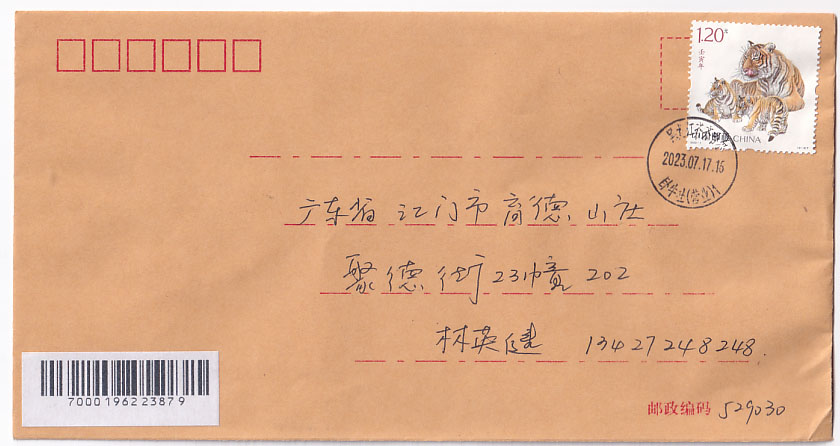 1.20元
壬寅年
中国邮政 CHINA
2023.07.17.16
广东省江门市高德山庄
聚德街23幢202
林英健 13427248248
7000196223879
邮政编码 529030